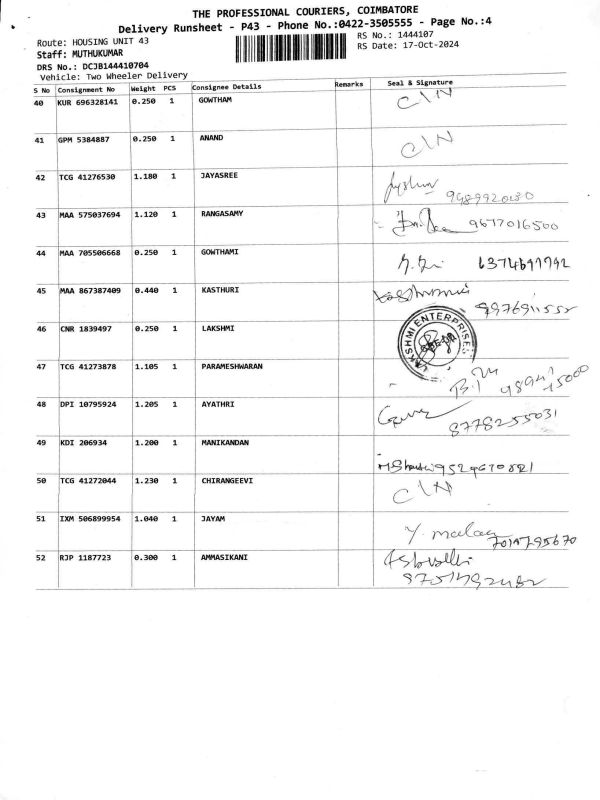 THE PROFESSIONAL COURIERS, COIMBATORE
Delivery Runsheet - P43 - Phone No.:0422-3505555 - Page No.:4
Route: HOUSING UNIT 43
RS No.: 1444107
Staff: MUTHUKUMAR
RS Date: 17-Oct-2024
DRS No.: DCJB144410704
Vehicle: Two Wheeler Delivery
S No Consignment No Weight PCS Consignee Details Remarks Seal & Signature
40 KUR 696328141 0.250 1 GOWTHAM C\N
41 GPM 5384887 0.250 1 ANAND C\N
42 TCG 41276530 1.180 1 JAYASREE
43 MAA 575037694 1.120 1 RANGASAMY 9677016500
44 MAA 705506668 0.250 1 GOWTHAMI
45 MAA 867387409 0.440 1 KASTHURI
46 CNR 1839497 0.250 1 LAKSHMI LAKSHMI ENTERPRISES
47 TCG 41273878 1.105 1 PARAMESHWARAN
48 DPI 10795924 1.205 1 AYATHRI 8778255031
49 KDI 206934 1.200 1 MANIKANDAN
50 TCG 41272044 1.230 1 CHIRANGEEVI C\N
51 IXM 506899954 1.040 1 JAYAM
52 RJP 1187723 0.300 1 AMMASIKANI